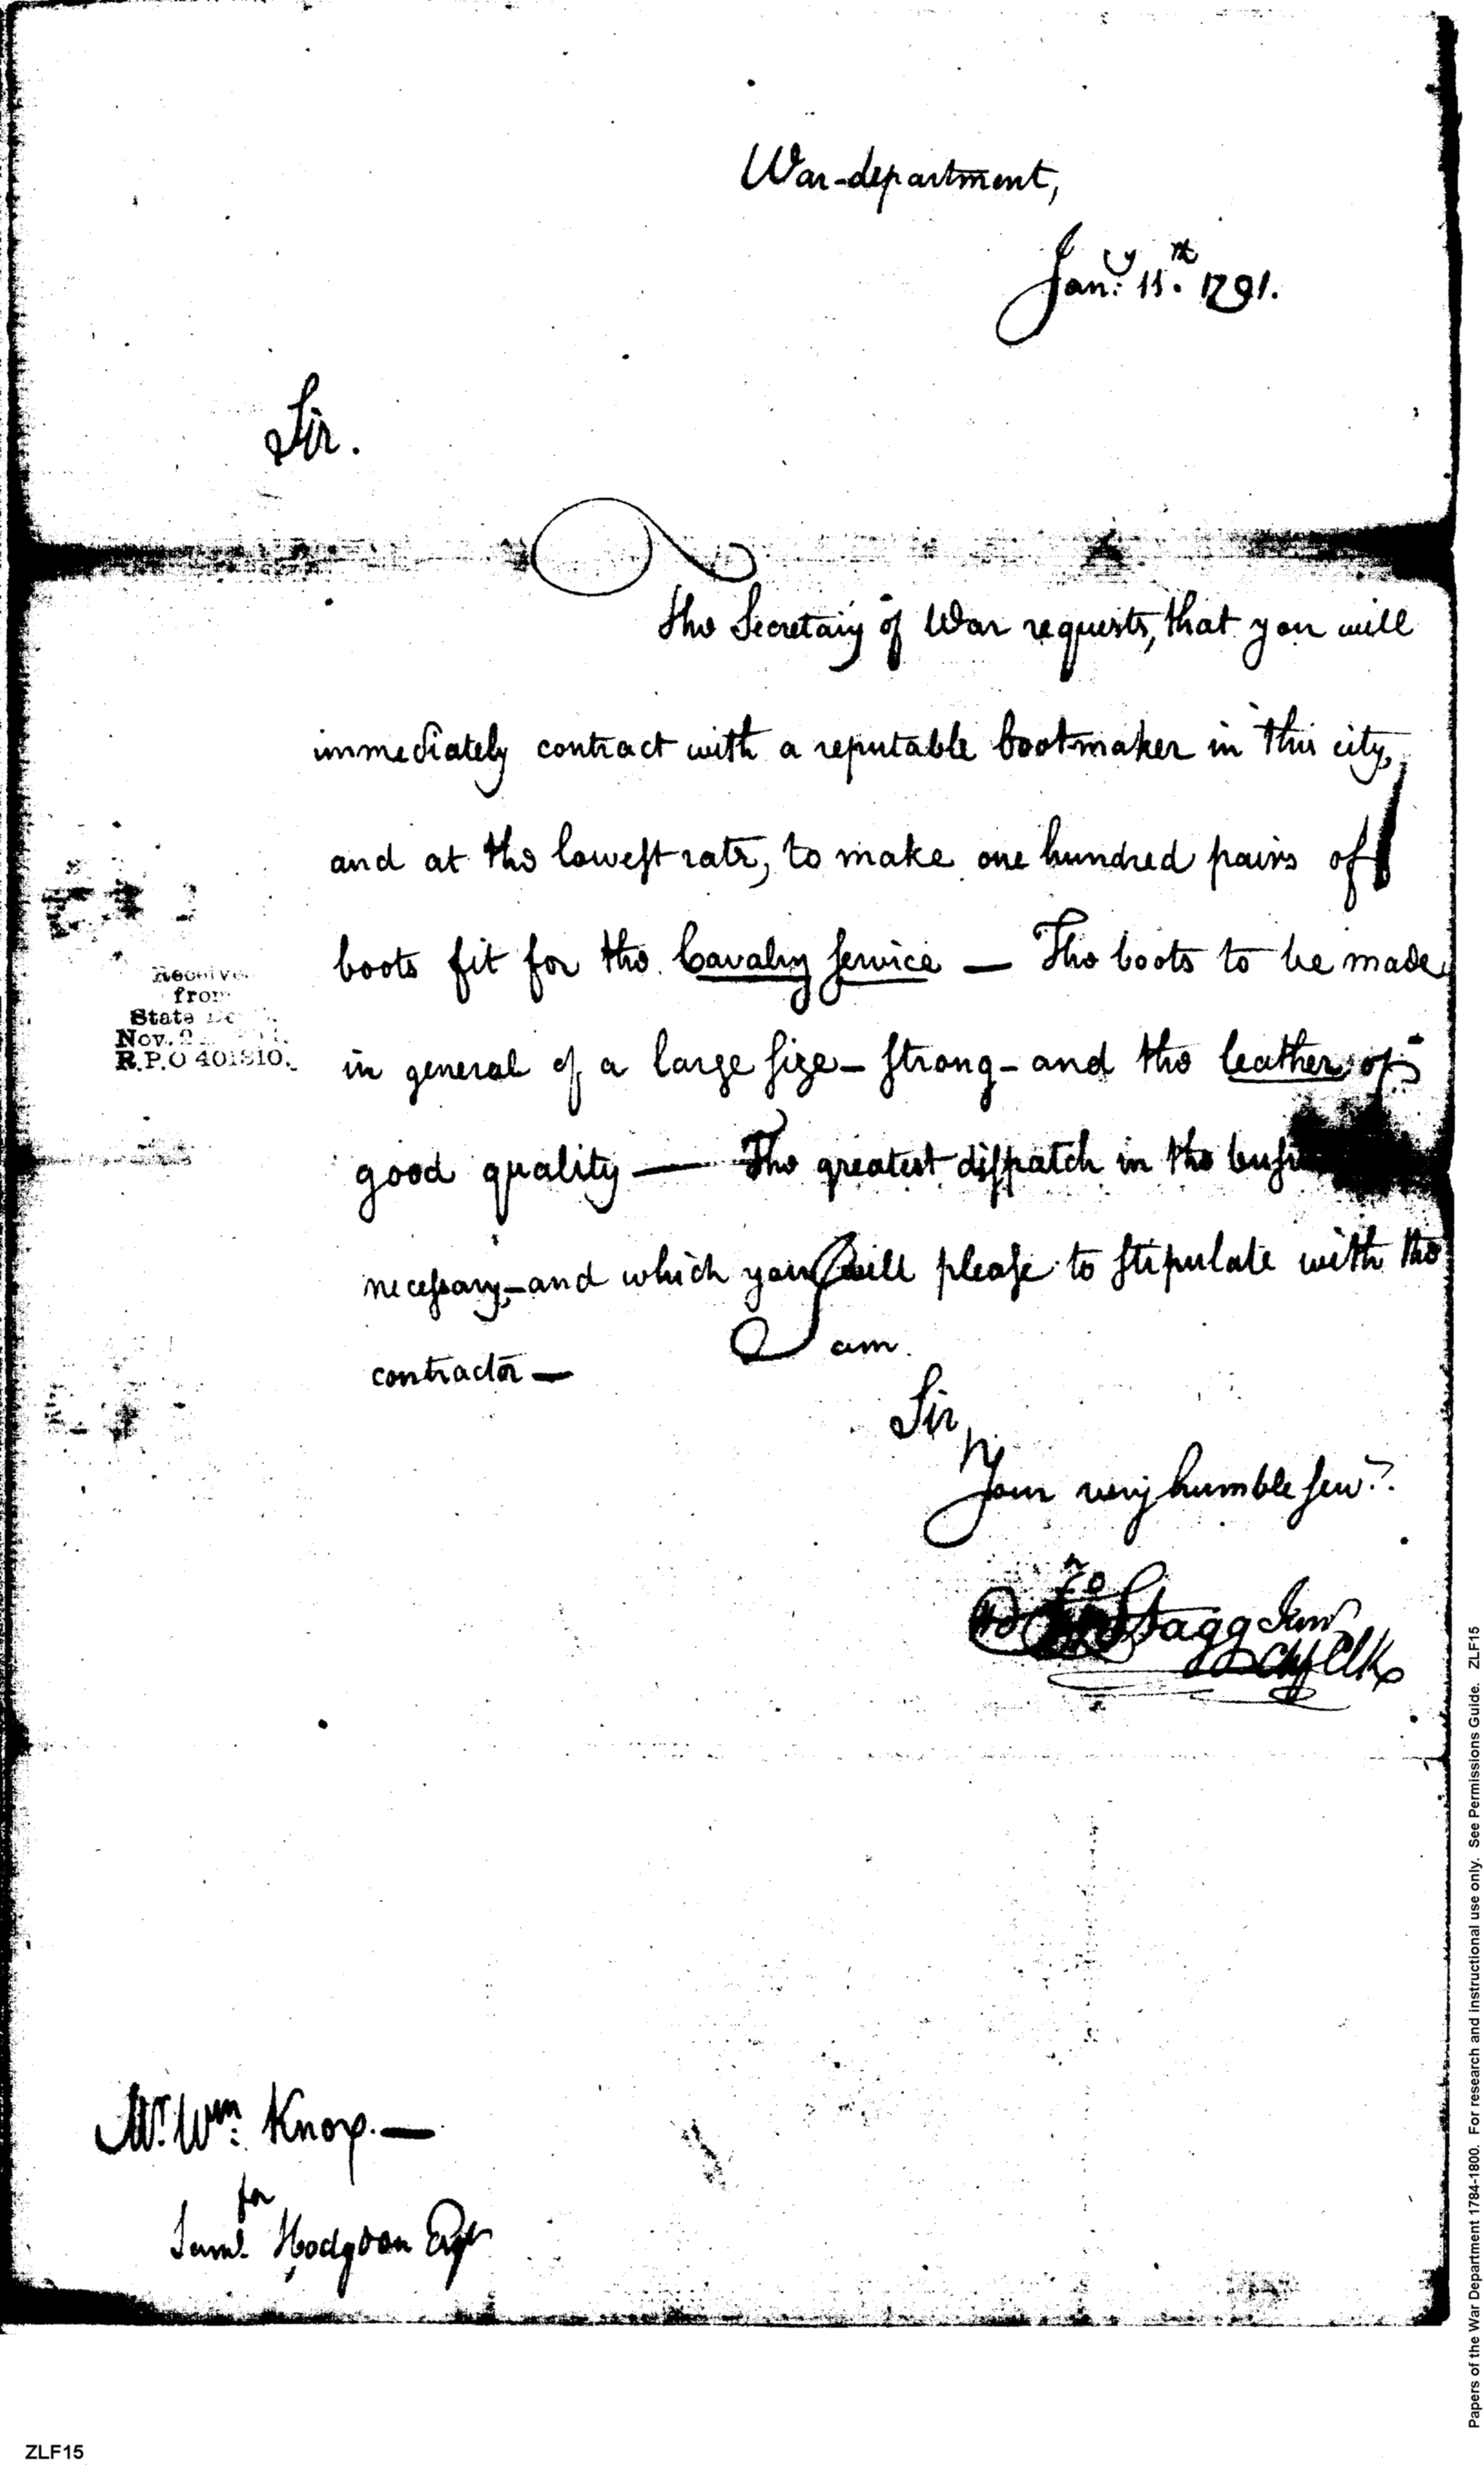 War-department,
Jan:y 11.th 1791.
Sir.
The Secretary of War requests, that you will
immediately contract with a reputable bootmaker in this city,
and at the lowest rate, to make one hundred pairs of
boots fit for the Cavalry service — The boots to be made
in general of a large size – strong – and the leather of
good quality — The greatest dispatch in the
necessary, – and which you will please to stipulate with the
contractor —
I am
Sir
Your very humble serv.t
Stagg Junr
Chf Clk
Mr. Wm: Knox. —
for
Saml. Hodgdon Esqr
from
State
Nov. 2
R.P.O 401810.
Papers of the War Department 1784-1800. For research and instructional use only. See Permissions Guide. ZLF15
ZLF15